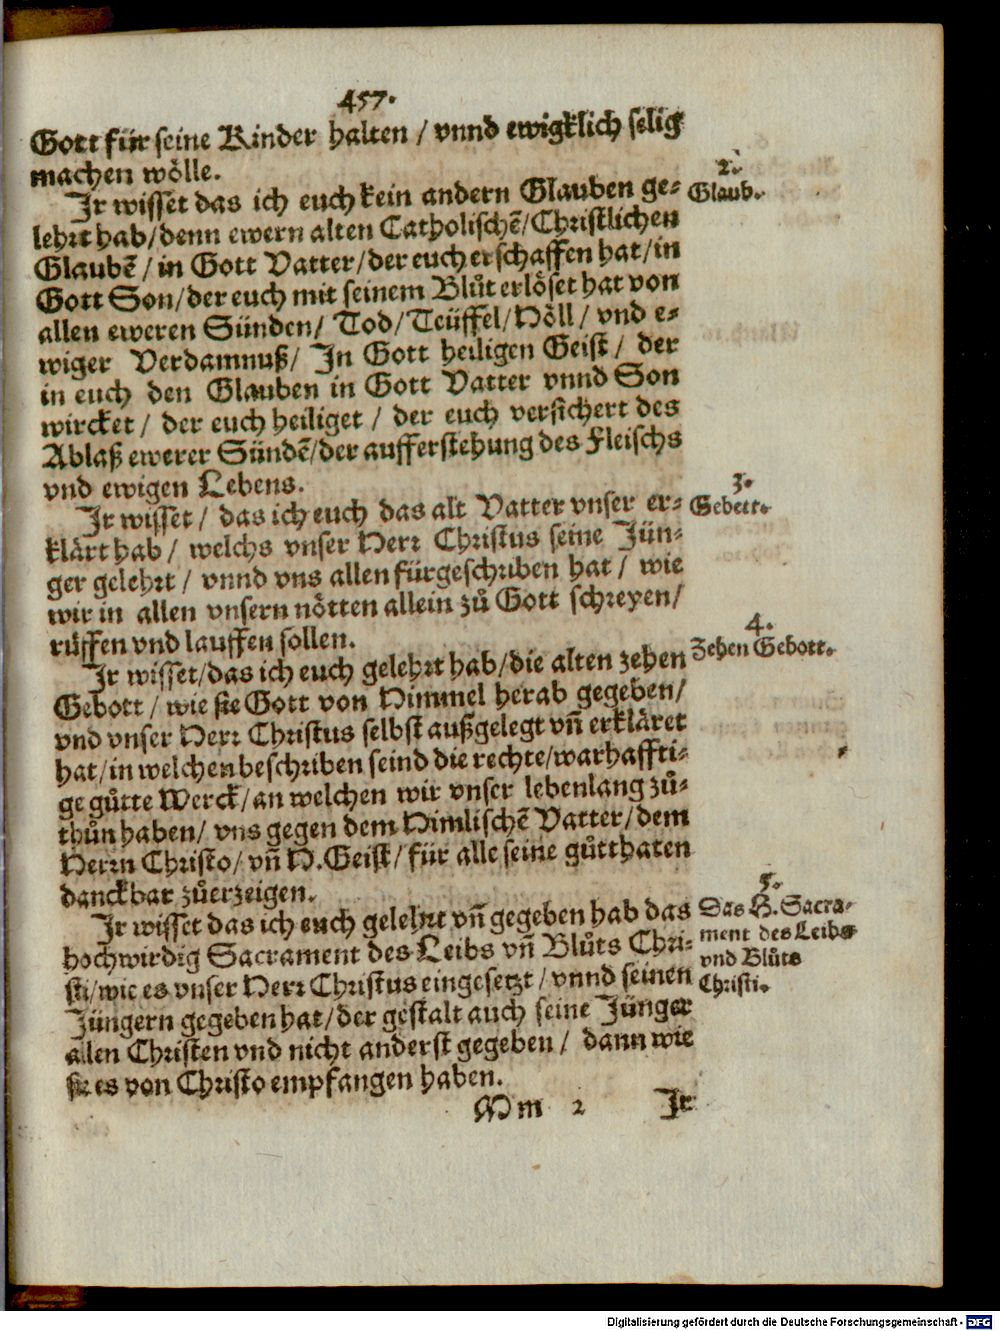 457.
Gott für seine Kinder halten / vnnd ewigklich selig
machen wölle.
2.
Glaub.
Jr wisset das ich euch kein andern Glauben ge-
lehrt hab/denn ewern alten Catholischẽ/Christlichen
Glaubẽ / in Gott Vatter/der euch erschaffen hat/in
Gott Son/der euch mit seinem Blůt erlöset hat von
allen eweren Sünden/ Tod/Teüffel/Höll/ vnd e-
wiger Verdamnuß/ Jn Gott heiligen Geist/ der
in euch den Glauben in Gott Vatter vnnd Son
wircket / der euch heiliget / der euch versichert des
Ablaß ewerer Sündẽ/der aufferstehung des Fleischs
vnd ewigen Lebens.
3.
Gebett.
Jr wisset / das ich euch das alt Vatter vnser er-
klärt hab / welchs vnser Herr Christus seine Jün-
ger gelehrt / vnnd vns allen fürgeschriben hat / wie
wir in allen vnsern nötten allein zů Gott schreyen/
růffen vnd lauffen sollen.
4.
Zehen Gebott.
Jr wisset/das ich euch gelehrt hab/die alten zehen
Gebott / wie sie Gott von Himmel herab gegeben/
vnd vnser Herr Christus selbst außgelegt vñ erkläret
hat/in welchen beschriben seind die rechte/warhaffti-
ge gůtte Werck/an welchen wir vnser lebenlang zů-
thůn haben/ vns gegen dem Himlischẽ Vatter/dem
Herrn Christo/ vñ H.Geist/für alle seine gůtthaten
danckbar zůerzeigen.
5.
Das H. Sacra-
ment des Leibs
vnd Blůts
Christi.
Jr wisset das ich euch gelehrt vñ gegeben hab das
hochwirdig Sacrament des Leibs vñ Blůts Chri-
sti/wie es vnser Herr Christus eingesetzt / vnnd seinen
Jüngern gegeben hat/der gestalt auch seine Jünger
allen Christen vnd nicht anderst gegeben / dann wie
sie es von Christo empfangen haben.
Mm 2 Jr
Digitalisierung gefördert durch die Deutsche Forschungsgemeinschaft - DFG